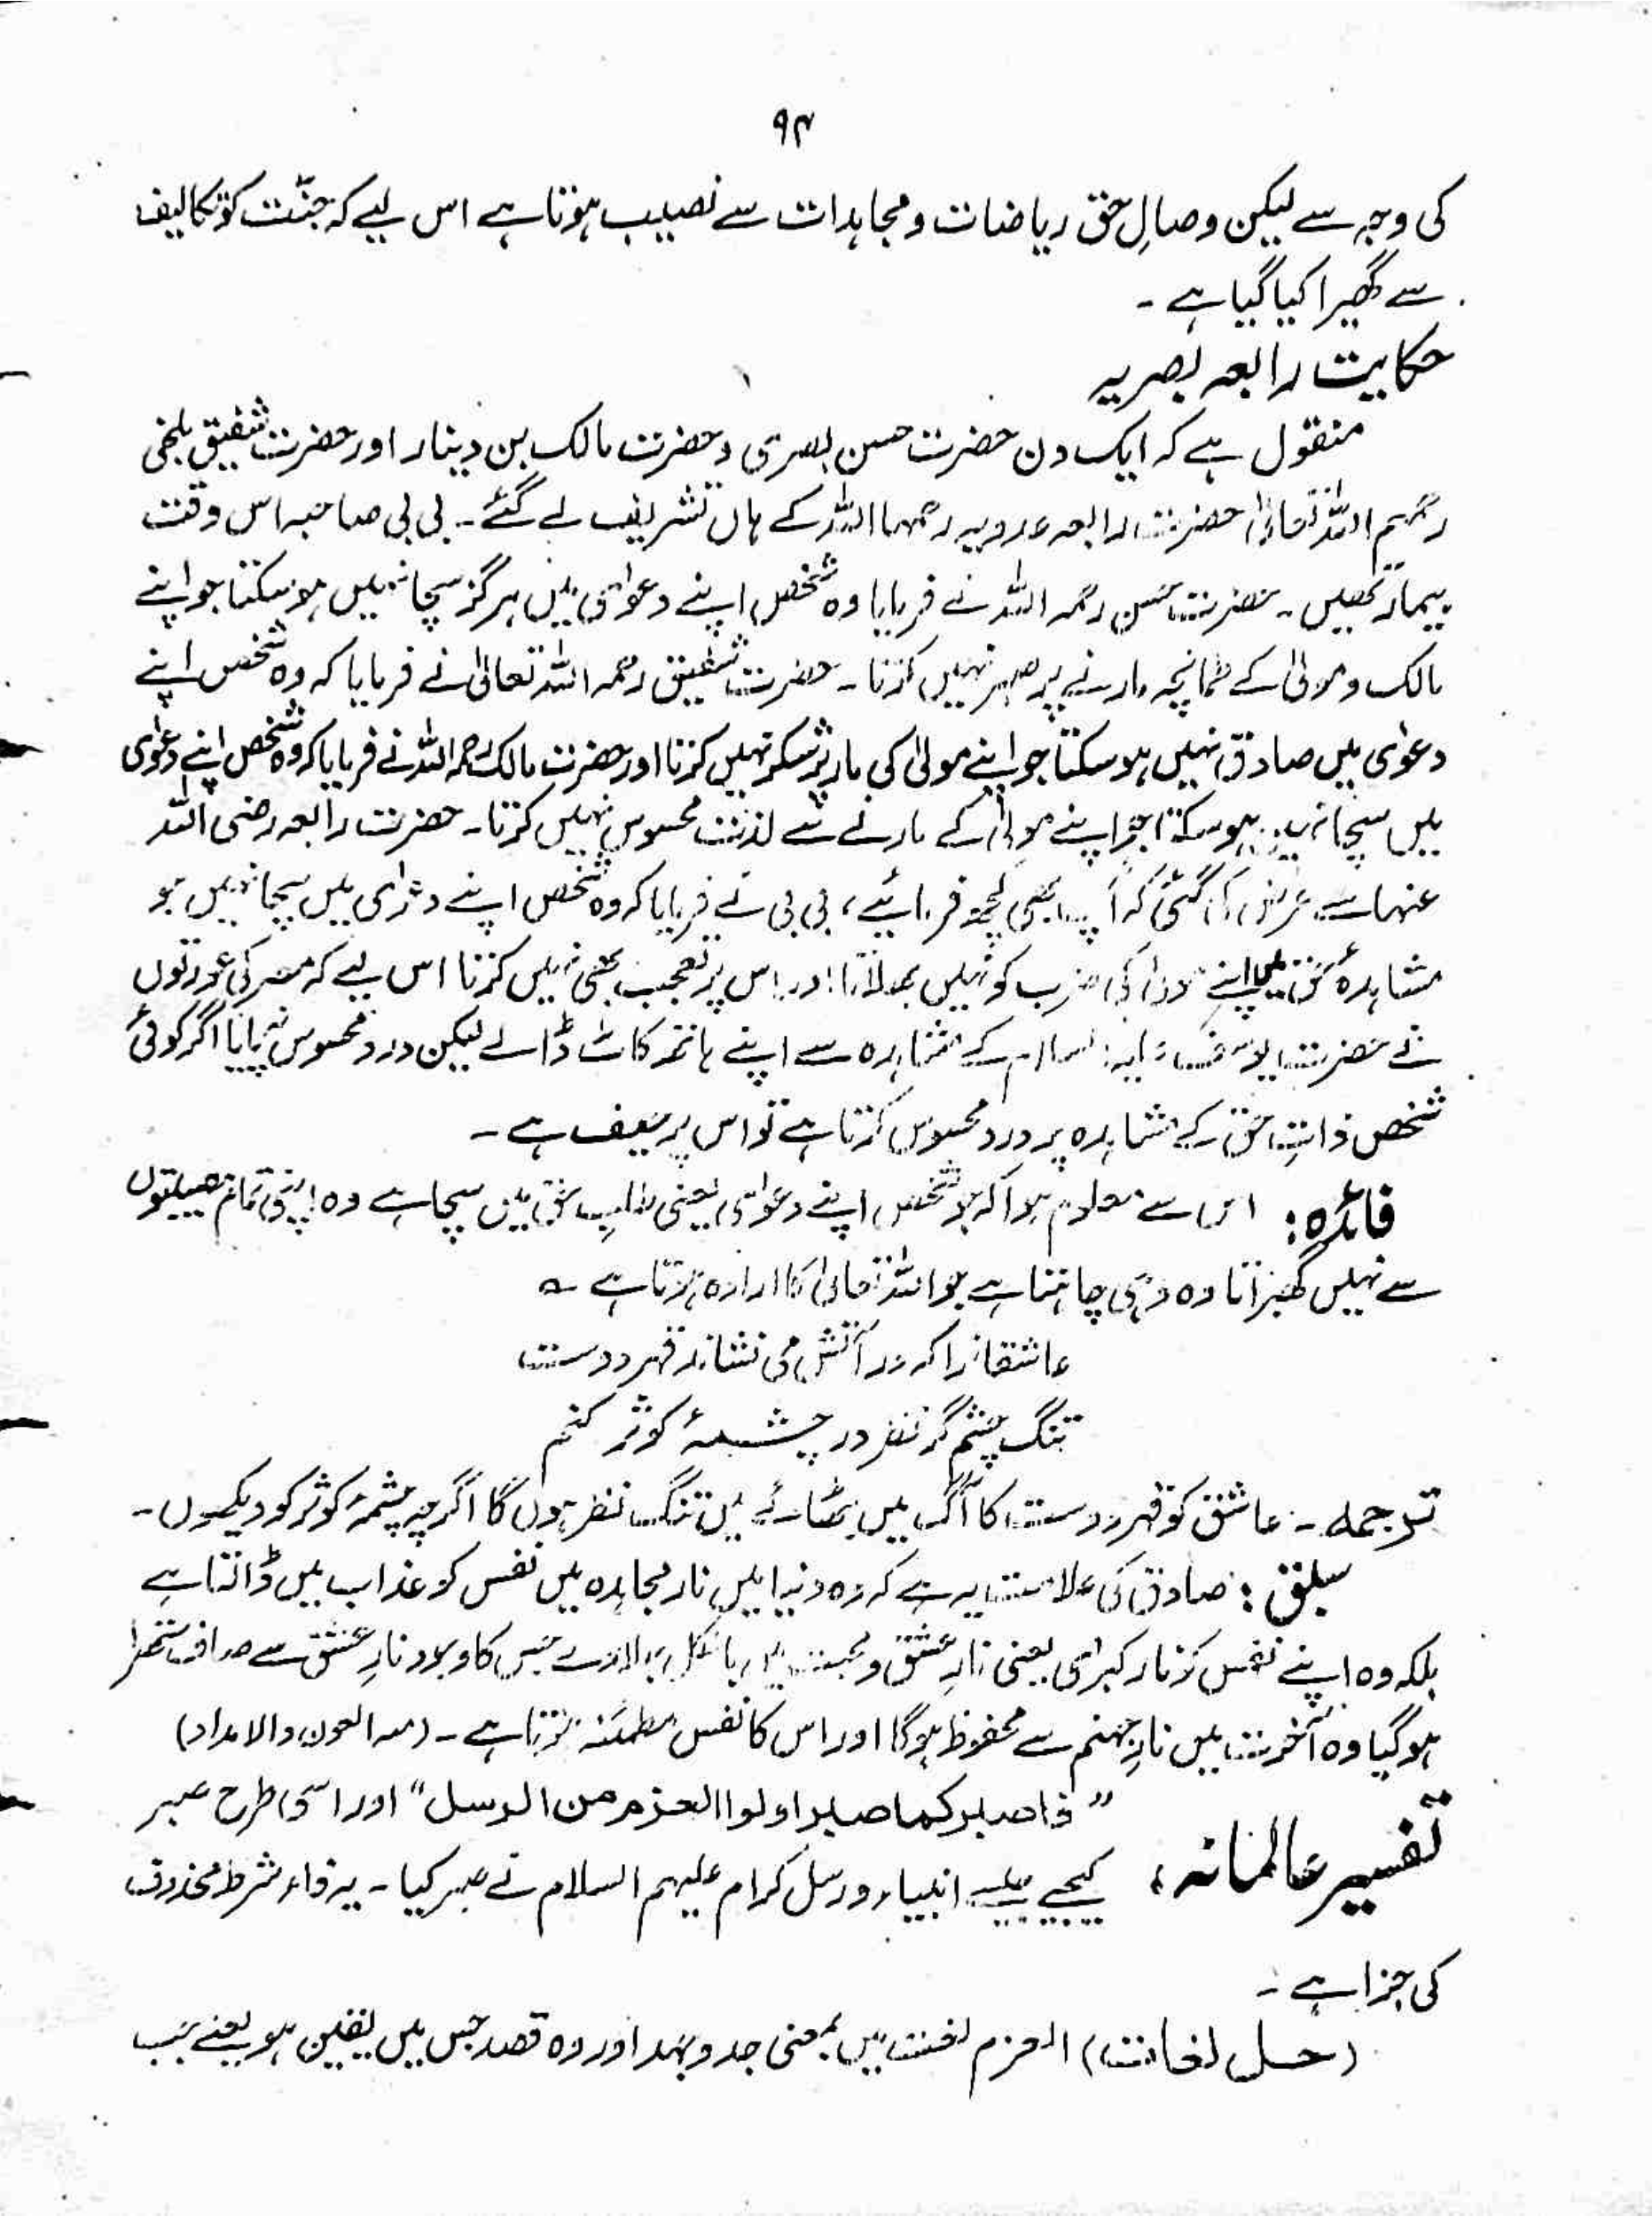 ۹۴
کی وجہ سے لیکن وصالِ حق ریاضات و مجاہدات سے نصیب ہوتا ہے اس لیے کہ جنّت کو تکالیف
سے گھیرا کیا گیا ہے ۔
حکایت رابعہ بصریہ
منقول ہے کہ ایک دن حضرت حسن بصری و حضرت مالک بن دینار اور حضرت شفیق بلخی
رحمہم اللہ تعالیٰ حضرت رابعہ عدویہ رحمہا اللہ کے ہاں تشریف لے گئے ۔ بی بی صاحبہ اس وقت
بیمار تھیں ۔ حضرت حسن رحمہ اللہ نے فرمایا وہ شخص اپنے دعوٰی میں ہرگز سچا نہیں ہو سکتا جو اپنے
مالک و مولیٰ کے طمانچہ مارنے پر صبر نہیں کرتا ۔ حضرت شفیق رحمہ اللہ تعالیٰ نے فرمایا کہ وہ شخص اپنے
دعوٰی میں صادق نہیں ہو سکتا جو اپنے مولیٰ کی مار پر شکر نہیں کرتا اور حضرت مالک رحمہ اللہ نے فرمایا کہ وہ شخص اپنے دعوٰی
میں سچا نہیں ہو سکتا جو اپنے مولیٰ کے مارنے سے لذت محسوس نہیں کرتا ۔ حضرت رابعہ رضی اللہ
عنہا سے عرض کی گئی کہ آپ بھی کچھ فرمائیے ، بی بی نے فرمایا کہ وہ شخص اپنے دعوٰی میں سچا نہیں جو
مشاہدۂ حق میں اپنے مولیٰ کی ضرب کو نہیں بھولتا اور اس پر تعجب بھی نہیں کرتا اس لیے کہ مصر کی عورتوں
نے حضرت یوسف علیہ السلام کے مشاہدہ سے اپنے ہاتھ کاٹ ڈالے لیکن درد محسوس نہ پایا اگر کوئی
شخص ذاتِ حق کے مشاہدہ پر درد محسوس کرتا ہے تو اس پر حیف ہے ۔
فائدہ : اس سے معلوم ہوا کہ جو شخص اپنے دعوٰی یعنی طلبِ حق میں سچا ہے وہ اپنی تمام مصیبتوں
سے نہیں گھبراتا وہ وہی چاہتا ہے جو اللہ تعالیٰ کا ارادہ ہوتا ہے ؎
عاشقانرا کہ در آتش می نشاند قہر دوست
تنگ چشم گر نظر در چشمۂ کوثر کنم
ترجمہ ۔ عاشق کو قہر دوست کا آگ میں بٹھائے میں تنگ نظر ہوں گا اگرچہ چشمۂ کوثر کو دیکھوں ۔
سبق : صادق کی علامت یہ ہے کہ وہ دنیا میں نار مجاہدہ میں نفس کو عذاب میں ڈالتا ہے
بلکہ وہ اپنے نفس کو نار کبرٰی یعنی نارِ عشق و محبت میں بالکل جلا دے جس کا وجود نارِ عشق سے صاف ستھرا
ہو گیا وہ آخرت میں نارِ جہنم سے محفوظ ہوگا اور اس کا نفس مطمئنہ ہوتا ہے ۔ (منہ العون والامداد)
تفسیر عالمانہ ، ” فاصبر کما صبر اولوا العزم من الرسل “ اور اسی طرح صبر
کیجیے جیسے انبیاء و رسل کرام علیہم السلام نے صبر کیا ۔ یہ فاء شرط محذوف
کی جزا ہے ۔
(حل لغات) العزم لغت میں بمعنی جد و جہد اور وہ قصد جس میں یقین ہو یعنے جب